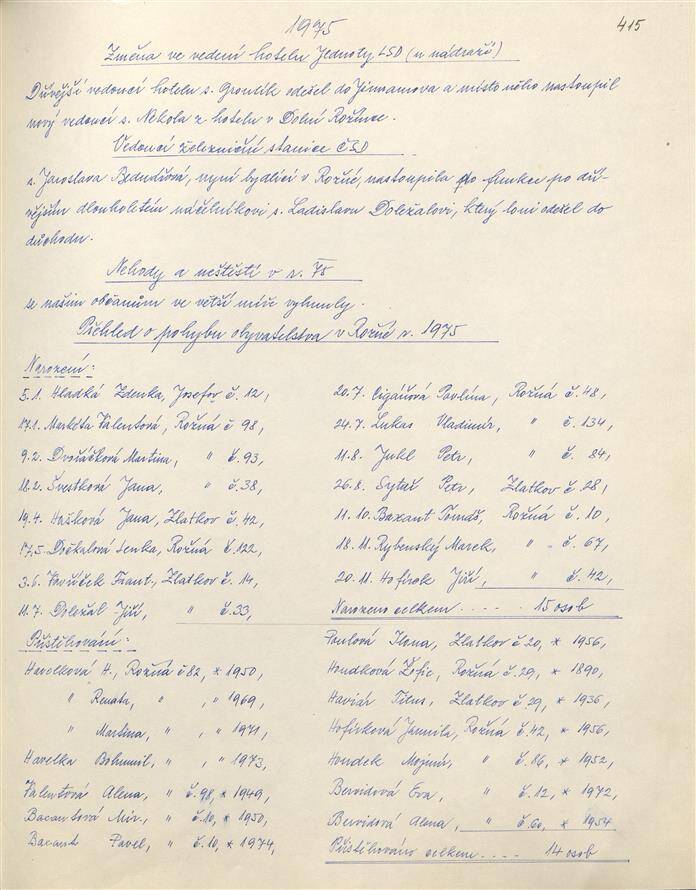 1975
415
Změna ve vedení hotelu Jednoty LSD (u nádraží)
Dřívější vedoucí hotelu s. Gronlík odešel do Jimramova a místo něho nastoupil
nový vedoucí s. Nekola z hotelu v Dolní Rožínce.
Vedoucí železniční stanice ČSD
s. Jaroslava Bednářová, nyní bydlící v Rožné, nastoupila do funkce po dří-
vějším dlouholetém náčelníkovi s. Ladislavu Doležalovi, který loni odešel do
důchodu.
Nehody a neštěstí v r. 75
se našim občanům ve větší míře vyhnuly.
Přehled o pohybu obyvatelstva v Rožné r. 1975
Narození:
5.1. Hladká Zdenka, Josefov č. 12,
17.1. Markéta Valentová, Rožná č 98,
9.2. Dvořáčková Martina, " č. 93,
18.2. Švestková Jana, " č. 38,
19.4. Hašková Jana, Zlatkov č. 42,
17.5 Dočkalová Lenka, Rožná č. 122,
3.6. Vavříček Frant., Zlatkov č. 14,
11.7. Doležal Jiří, " č. 33,
20.7. Cigánová Pavlína, Rožná č. 48,
24.7. Lukas Vladimír, " č. 134,
11.8. Jukl Petr, " č. 84,
26.8. Sytař Petr, Zlatkov č 28,
11.10. Baxant Tomáš, Rožná č. 10,
18.11. Rybenský Marek, " č. 67,
20.11. Hofírek Jiří, " č. 42,
Narozeno celkem ..... 15 osob
Přistěhování:
Havelková H., Rožná č 82, * 1950,
" Renata, " , " 1969,
" Martina, " , " 1971,
Havelka Bohumil, " , " 1973,
Valentová Alena, " č. 98, * 1949,
Bacantová Mir., " č. 10, * 1950,
Bacant Pavel, " č. 10, * 1974,
Poulová Ilona, Zlatkov č 20, * 1956,
Hondková Žofie, Rožná č. 29, * 1890,
Haviár Titus, Zlatkov č 29, * 1936,
Hofírková Jarmila, Rožná č. 42, * 1956,
Hondek Mojmír, " č. 86, * 1952,
Bervidová Eva, " č. 12, * 1972,
Bervidová Alena, " č. 60, * 1954
Přistěhováno celkem .... 14 osob